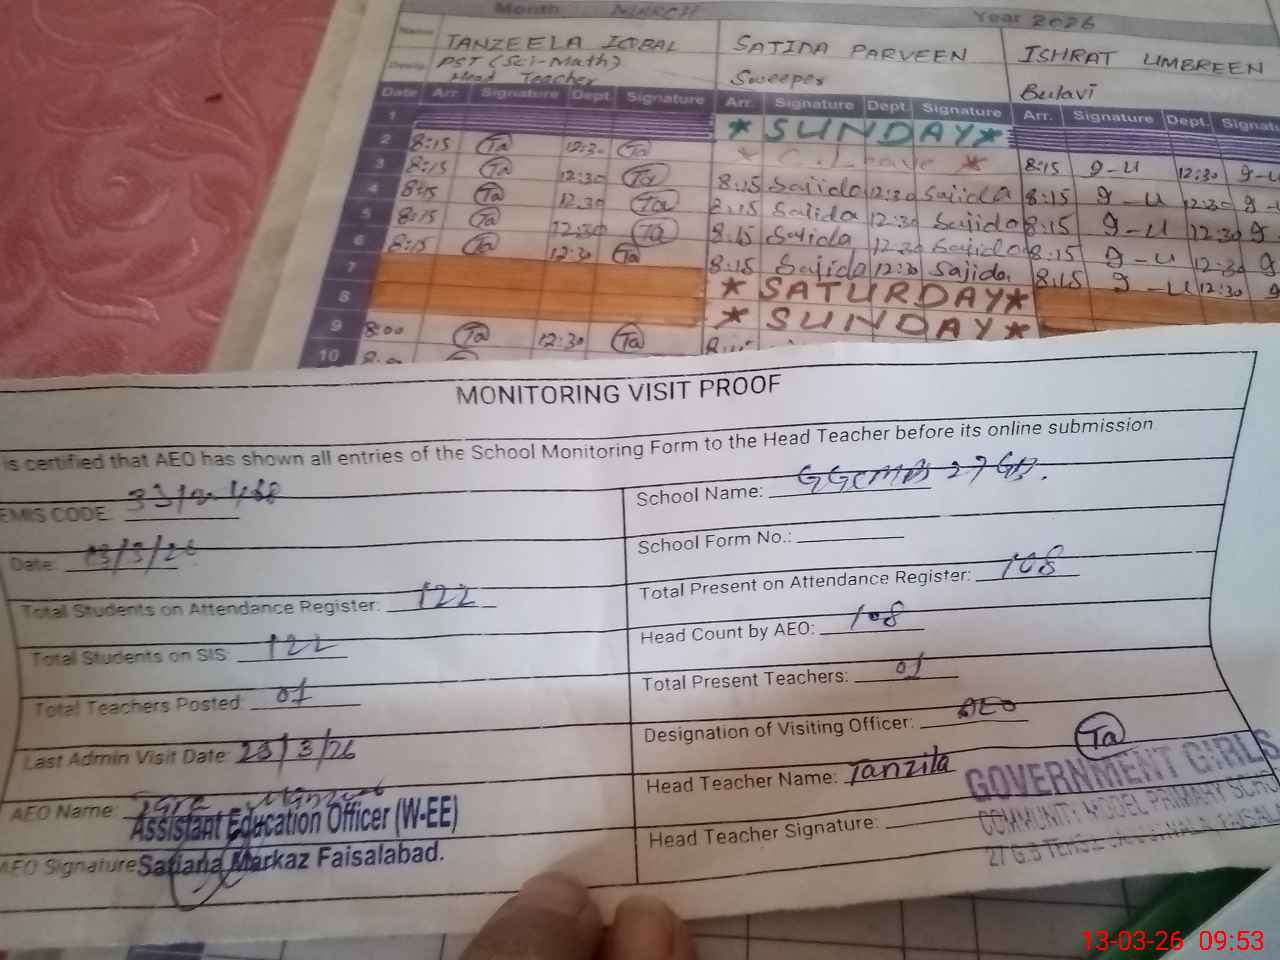 Month MARCH Year 2026
Name TANZEELA IQBAL SAJIDA PARVEEN ISHRAT UMBREEN
Desig. PST (Sci-Math) Sweeper Bulavi
Head Teacher
Date Arr. Signature Dept. Signature Arr. Signature Dept. Signature Arr. Signature Dept.
1 * SUNDAY *
2 8:15 Ta 12:30 Ta * C. Leave * 8:15 g-u 12:30 g-u
3 8:15 Ta 12:30 Ta 8:15 Sajida 12:30 Sajida 8:15 g-u 12:30 g-
4 8:15 Ta 12:30 Ta 8:15 Sajida 12:30 Sajida 8:15 g-u 12:30 g-
5 8:15 Ta 12:30 Ta 8:15 Sajida 12:30 Sajida 8:15 g-u 12:30 g
6 8:15 Ta 12:30 Ta 8:15 Sajida 12:30 Sajida 8:15 g-u 12:30 g
7 * SATURDAY *
8 * SUNDAY *
9 8:00 Ta 12:30 Ta
10
MONITORING VISIT PROOF
is certified that AEO has shown all entries of the School Monitoring Form to the Head Teacher before its online submission
EMIS CODE: School Name: 27 GB.
Date: 13/3/26 School Form No.:
Total Students on Attendance Register: 122 Total Present on Attendance Register: 108
Total Students on SIS: 122 Head Count by AEO: 108
Total Teachers Posted: 01 Total Present Teachers: 01
Last Admin Visit Date: /3/26 Designation of Visiting Officer: AEO
AEO Name: Head Teacher Name: Tanzila Ta
Assistant Education Officer (W-EE)
AEO Signature Satiana Markaz Faisalabad.
Head Teacher Signature:
GOVERNMENT GIRLS
COMMUNITY MODEL PRIMARY SCHO
27 G.B
13-03-26 09:53